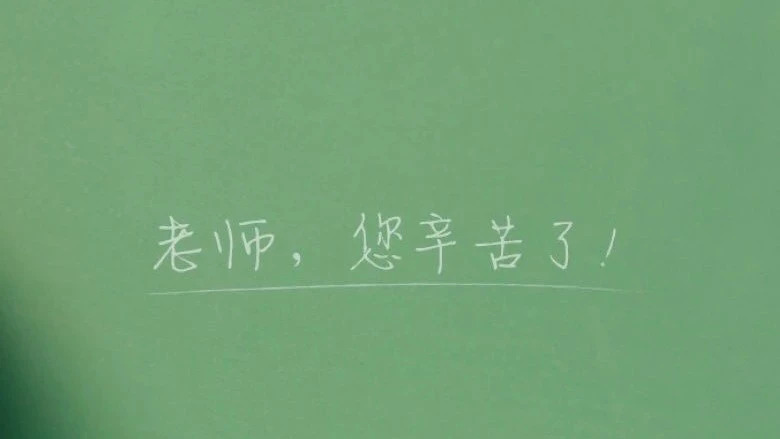 老师，您辛苦了！